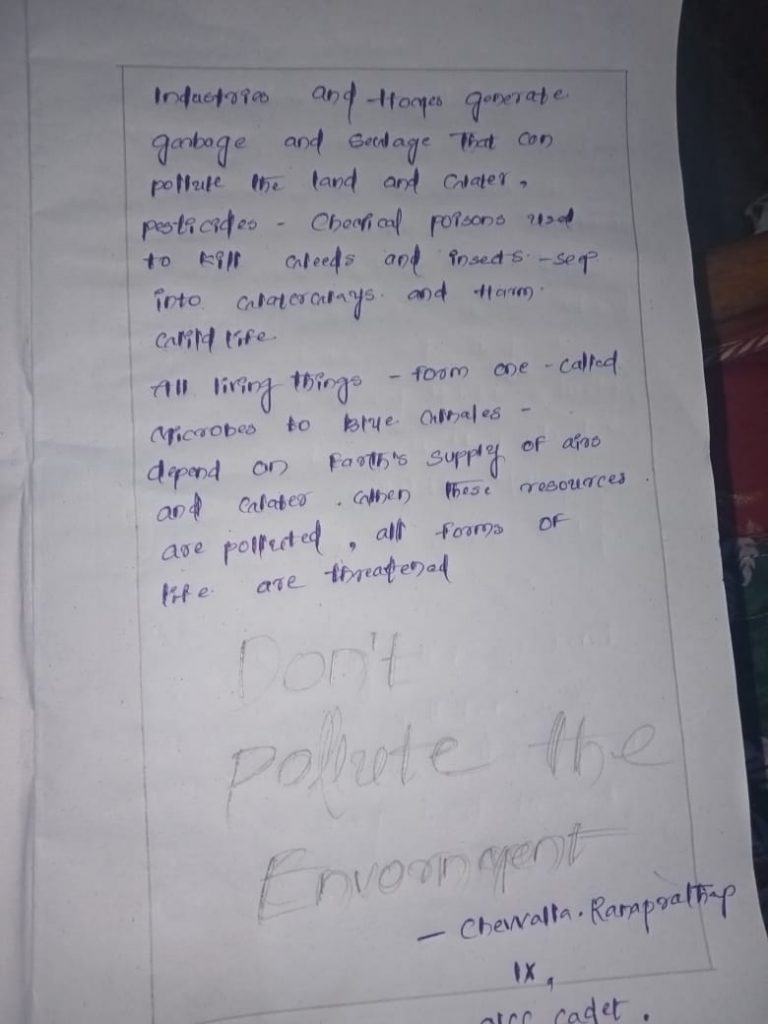 Industries and Homes generate
garbage and sewage that can
pollute the land and water,
pesticides - Chemical poisons used
to kill weeds and insects - seep
into waterways. and Harm
wild life
All living things - from one - called
Microbes to blue whales -
depend on Earth's supply of airs
and water. when these resources
are pollected, all forms of
life are threatened
Don't
pollute the
Envornment
- Chevvalla. Ramprathap
IX,
cadet.